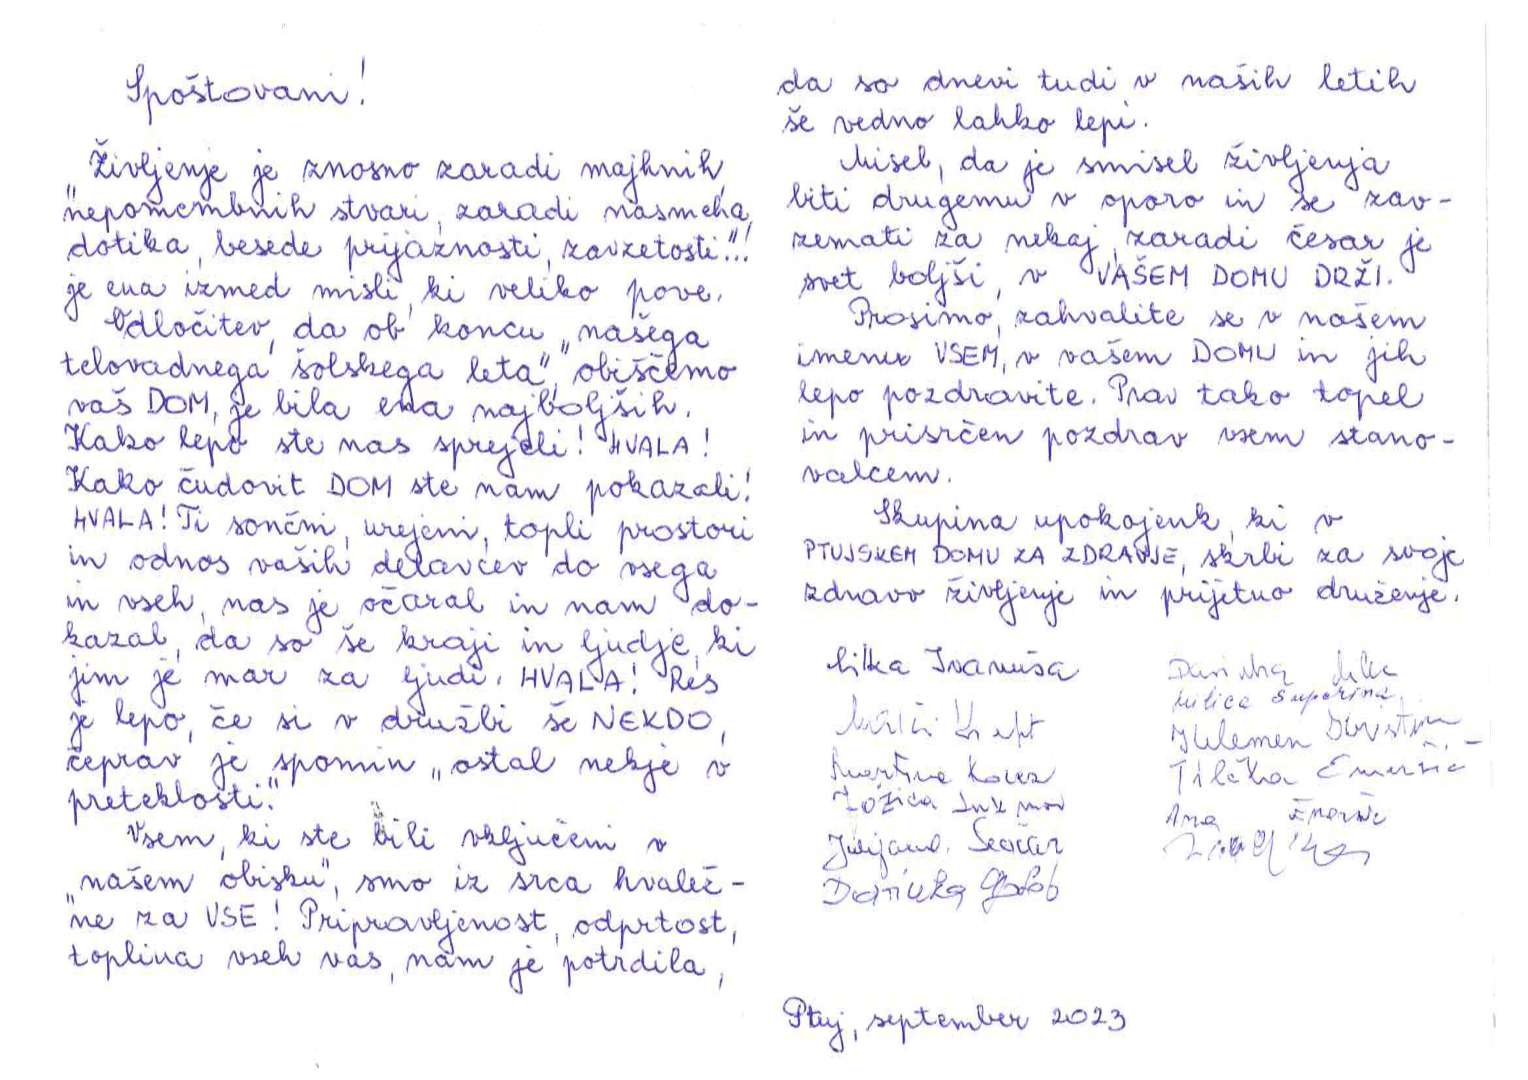 Spoštovani!
„Življenje je znosno zaradi majhnih,
nepomembnih stvari, zaradi nasmeha,
dotika, besede prijaznosti, zavzetosti..."!
je ena izmed misli, ki veliko pove.
Odločitev, da ob koncu „našega
telovadnega šolskega leta", obiščemo
vaš DOM, je bila ena najboljših.
Kako lepo ste nas sprejeli! HVALA!
Kako čudovit DOM ste nam pokazali!
HVALA! Ti sončni, urejeni, topli prostori
in odnos vaših delavcev do vsega
in vseh, nas je očaral in nam do-
kazal, da so še kraji in ljudje, ki
jim je mar za ljudi. HVALA! Res
je lepo, če si v družbi še NEKDO,
čeprav je spomin „ostal nekje v
preteklosti."
Vsem, ki ste bili vključeni v
„našem obisku", smo iz srca hvalež-
ne za VSE! Pripravljenost, odprtost,
toplina vseh vas, nam je potrdila,
da so dnevi tudi v naših letih
še vedno lahko lepi.
Misel, da je smisel življenja
biti drugemu v oporo in se zav-
zemati za nekaj, zaradi česar je
svet boljši, v VAŠEM DOMU DRŽI.
Prosimo, zahvalite se v našem
imenu VSEM, v vašem DOMU in jih
lepo pozdravite. Prav tako topel
in prisrčen pozdrav vsem stano-
valcem.
Skupina upokojenk, ki v
PTUJSKEM DOMU ZA ZDRAVJE, skrbi za svoje
zdravo življenje in prijetno druženje.
Milka Ivanuša
Martina
Jožica
Julijana
Darinka Golob
Darinka
Milica Superina
Klemen
Tilčka Emeršič
Ana
Ptuj, september 2023